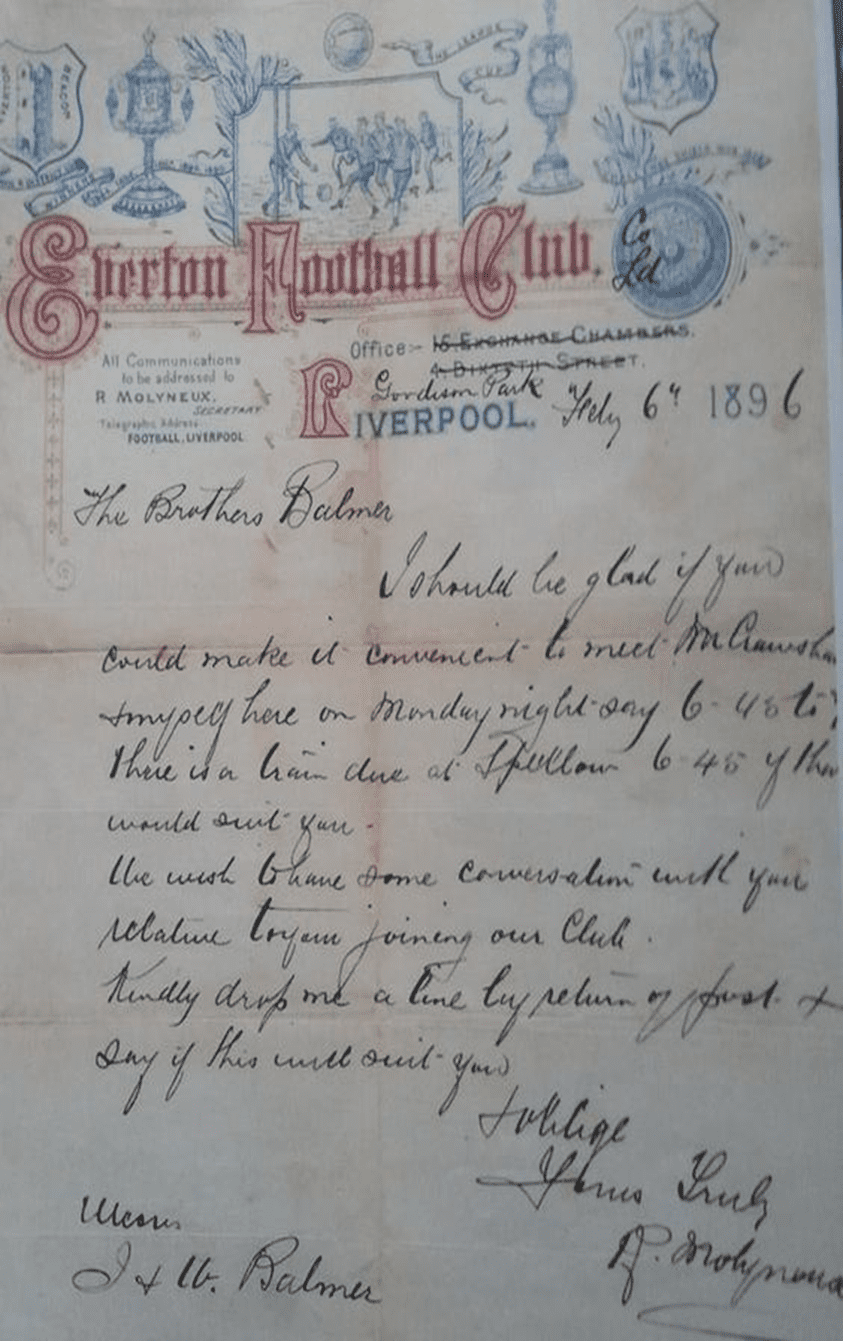 EVERTON BEACON
WINNERS
THE LEAGUE CUP
Everton Football Club. Co Ld
Office:- 15. EXCHANGE CHAMBERS.
4. BIXTETH STREET.
All Communications
to be addressed to
R MOLYNEUX.
SECRETARY
Telegraphic Address
FOOTBALL, LIVERPOOL
Goodison Park
LIVERPOOL. Feby 6th 1896
The Brothers Balmer
I should be glad if you
could make it convenient to meet Mr Crawsha
& myself here on Monday night say 6-45 to
There is a train due at Spellow 6-45 if that
would suit you -
We wish to have some conversation with you
relative to your joining our Club.
Kindly drop me a line by return of post &
say if this will suit you
& oblige
Yours Truly
R. Molyneux
Messrs
J & W. Balmer